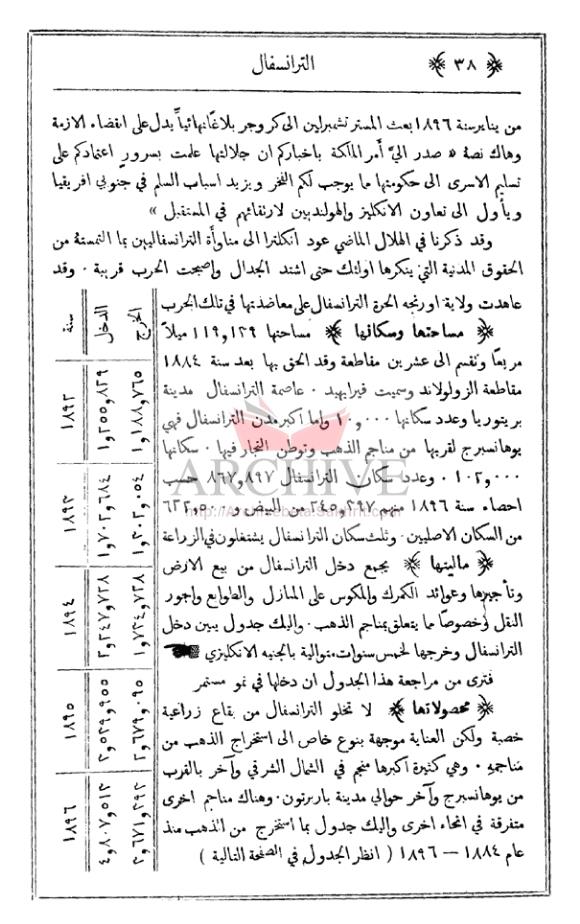 ﴿ ٣٨ ﴾ الترانسفال
من يناير سنة ١٨٩٦ بعث المستر تشمبرلين الى كروجر بلاغاً نهائياً يدل على انقضاء الازمة
وهاك نصهُ « صدر اليَّ أمر الملكة باخباركم ان جلالتها علمت بسرور اعتمادكم على
تسليم الاسرى الى حكومتها ما يوجب لكم الفخر ويزيد اسباب السلم في جنوبي افريقيا
ويأول الى تعاون الانكليز والهولنديين لارتقائهم في المستقبل »
وقد ذكرنا في الهلال الماضي عود انكلترا الى مناوأة الترانسفاليين بما التمستهُ من
الحقوق المدنية التي ينكرها اولئك حتى اشتد الجدال واصبحت الحرب قريبة ٠ وقد
عاهدت ولاية اورنجه الحرة الترانسفال على معاضدتها في تلك الحرب
﴿ مساحتها وسكانها ﴾ مساحتها ١١٩و١٣٩ ميلاً
مربعاً وتقسم الى عشرين مقاطعة وقد الحق بها بعد سنة ١٨٨٤
مقاطعة الزولولاند وسميت فيرايهيد ٠ عاصمة الترانسفال مدينة
بريتوريا وعدد سكانها ١٠و٠٠٠ واما اكبر مدن الترانسفال فهي
يوهانسبرج لقربها من مناجم الذهب وتوطن التجار فيها ٠ سكانها
١٠٢و٠٠٠ ٠ وعدد سكان الترانسفال ٨٦٧و٨٩٧ حسب
احصاء سنة ١٨٩٦ منهم ٢٤٥و٣٩٧ من البيض و ٦٢٢و٥٠٠
من السكان الاصليين ٠ وثلث سكان الترانسفال يشتغلون في الزراعة
﴿ ماليتها ﴾ يجمع دخل الترانسفال من بيع الارض
وتأجيرها وعوائد الكمرك والمكوس على المنازل والطوابع واجور
النقل وخصوصاً ما يتعلق بمناجم الذهب ٠ واليك جدول يبين دخل
الترانسفال وخرجها لخمس سنوات متوالية بالجنيه الانكليزي
فترى من مراجعة هذا الجدول ان دخلها في نمو مستمر
﴿ محصولاتها ﴾ لا تخلو الترانسفال من بقاع زراعية
خصبة ولكن العناية موجهة بنوع خاص الى استخراج الذهب من
مناجمهِ ٠ وهي كثيرة اكبرها منجم في الشمال الشرقي وآخر بالقرب
من يوهانسبرج وآخر حوالي مدينة باربرتون ٠ وهناك مناجم اخرى
متفرقة في انحاء اخرى واليك جدول بما استخرج من الذهب منذ
عام ١٨٨٤ — ١٨٩٦ ( انظر الجدول في الصفحة التالية )
سنة الدخل الخرج
١٨٩٢ ١و٢٥٥و٨٢٩ ١و١٨٨و٧٦٥
١٨٩٣ ١و٧٠٢و٦٨٤ ١و٣٠٢و٠٥٤
١٨٩٤ ٢و٢٤٧و٧٢٨ ١و٧٣٤و٧٢٨
١٨٩٥ ٣و٥٣٩و٩٥٥ ٢و٦٧٩و٠٩٥
١٨٩٦ ٤و٨٠٧و٥١٣ ٣و٦٧١و٣٩٣
ARCHIVE